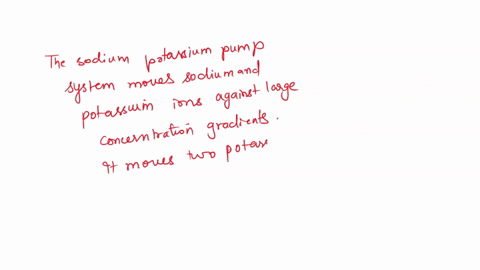 The sodium potassium pump
system moves sodium and
potassium ions against large
concerntration gradients.
It moves two potass